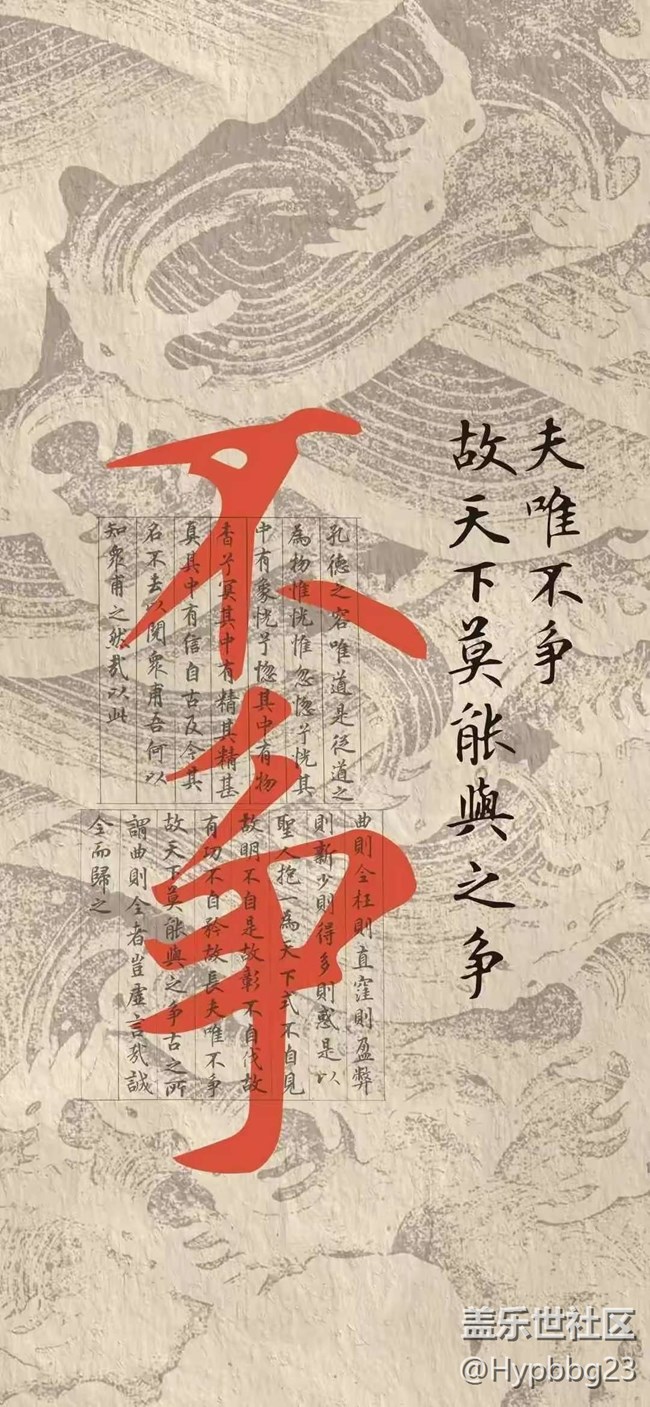 夫唯不争
故天下莫能與之争
不争
孔德之容唯道是從道之
為物惟恍惟忽惚兮恍其
中有象恍兮惚其中有物
杳兮冥其中有精其精甚
真其中有信自古及今其
名不去以閱衆甫吾何以
知衆甫之然哉以此
曲則全枉則直窪則盈弊
則新少則得多則惑是以
聖人抱一為天下式不自見
故明不自是故彰不自伐故
有功不自矜故長夫唯不争
故天下莫能與之争古之所
謂曲則全者豈虛言哉誠
全而歸之
盖乐世社区
@Hypbbg23